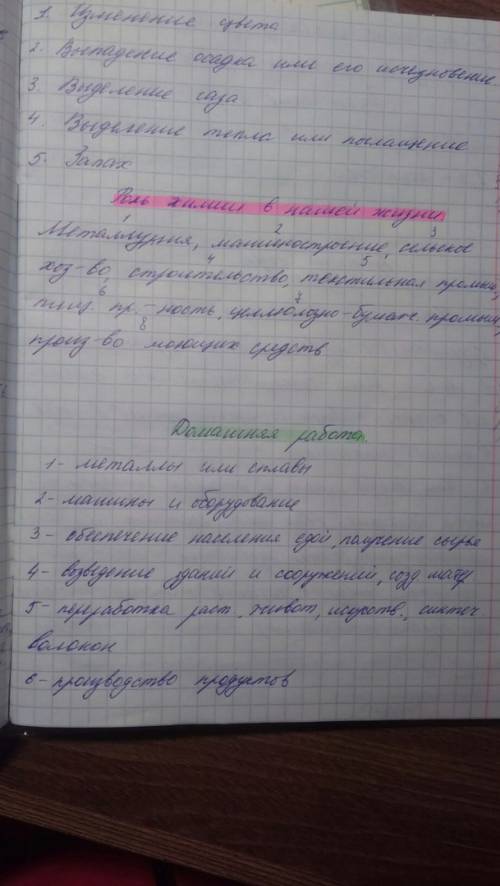 1. Изменение цвета
2. Выпадение осадка или его исчезновение
3. Выделение газа
4. Выделение тепла или поглащение
5. Запах
Роль химии в нашей жизни
1 2 3
Металлургия, машиностроение, сельское
4 5
хоз-во, строительство, текстильная промыш,
6 7
пищ. пр.-ность, целлюлозно-бумаж. промыш,
8
произ-во моющих средств
Домашняя работа
1- металлы или сплавы
2- машины и оборудование
3- обеспечение населения едой, получение сырья
4- возведение зданий и сооружений, созд. матер
5- переработка раст., живот, искусств., синтеч
волокон
6- производство продуктов